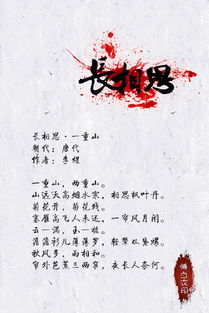 長相思
长相思·一重山
朝代：唐代
作者：李煜
一重山，两重山。
山远天高烟水寒，相思枫叶丹。
菊花开，菊花残。
塞雁高飞人未还，一帘风月闲。
云一涡，玉一梭。
澹澹衫儿薄薄罗，轻颦双黛螺。
秋风多，雨相和。
帘外芭蕉三两窠，夜长人奈何。